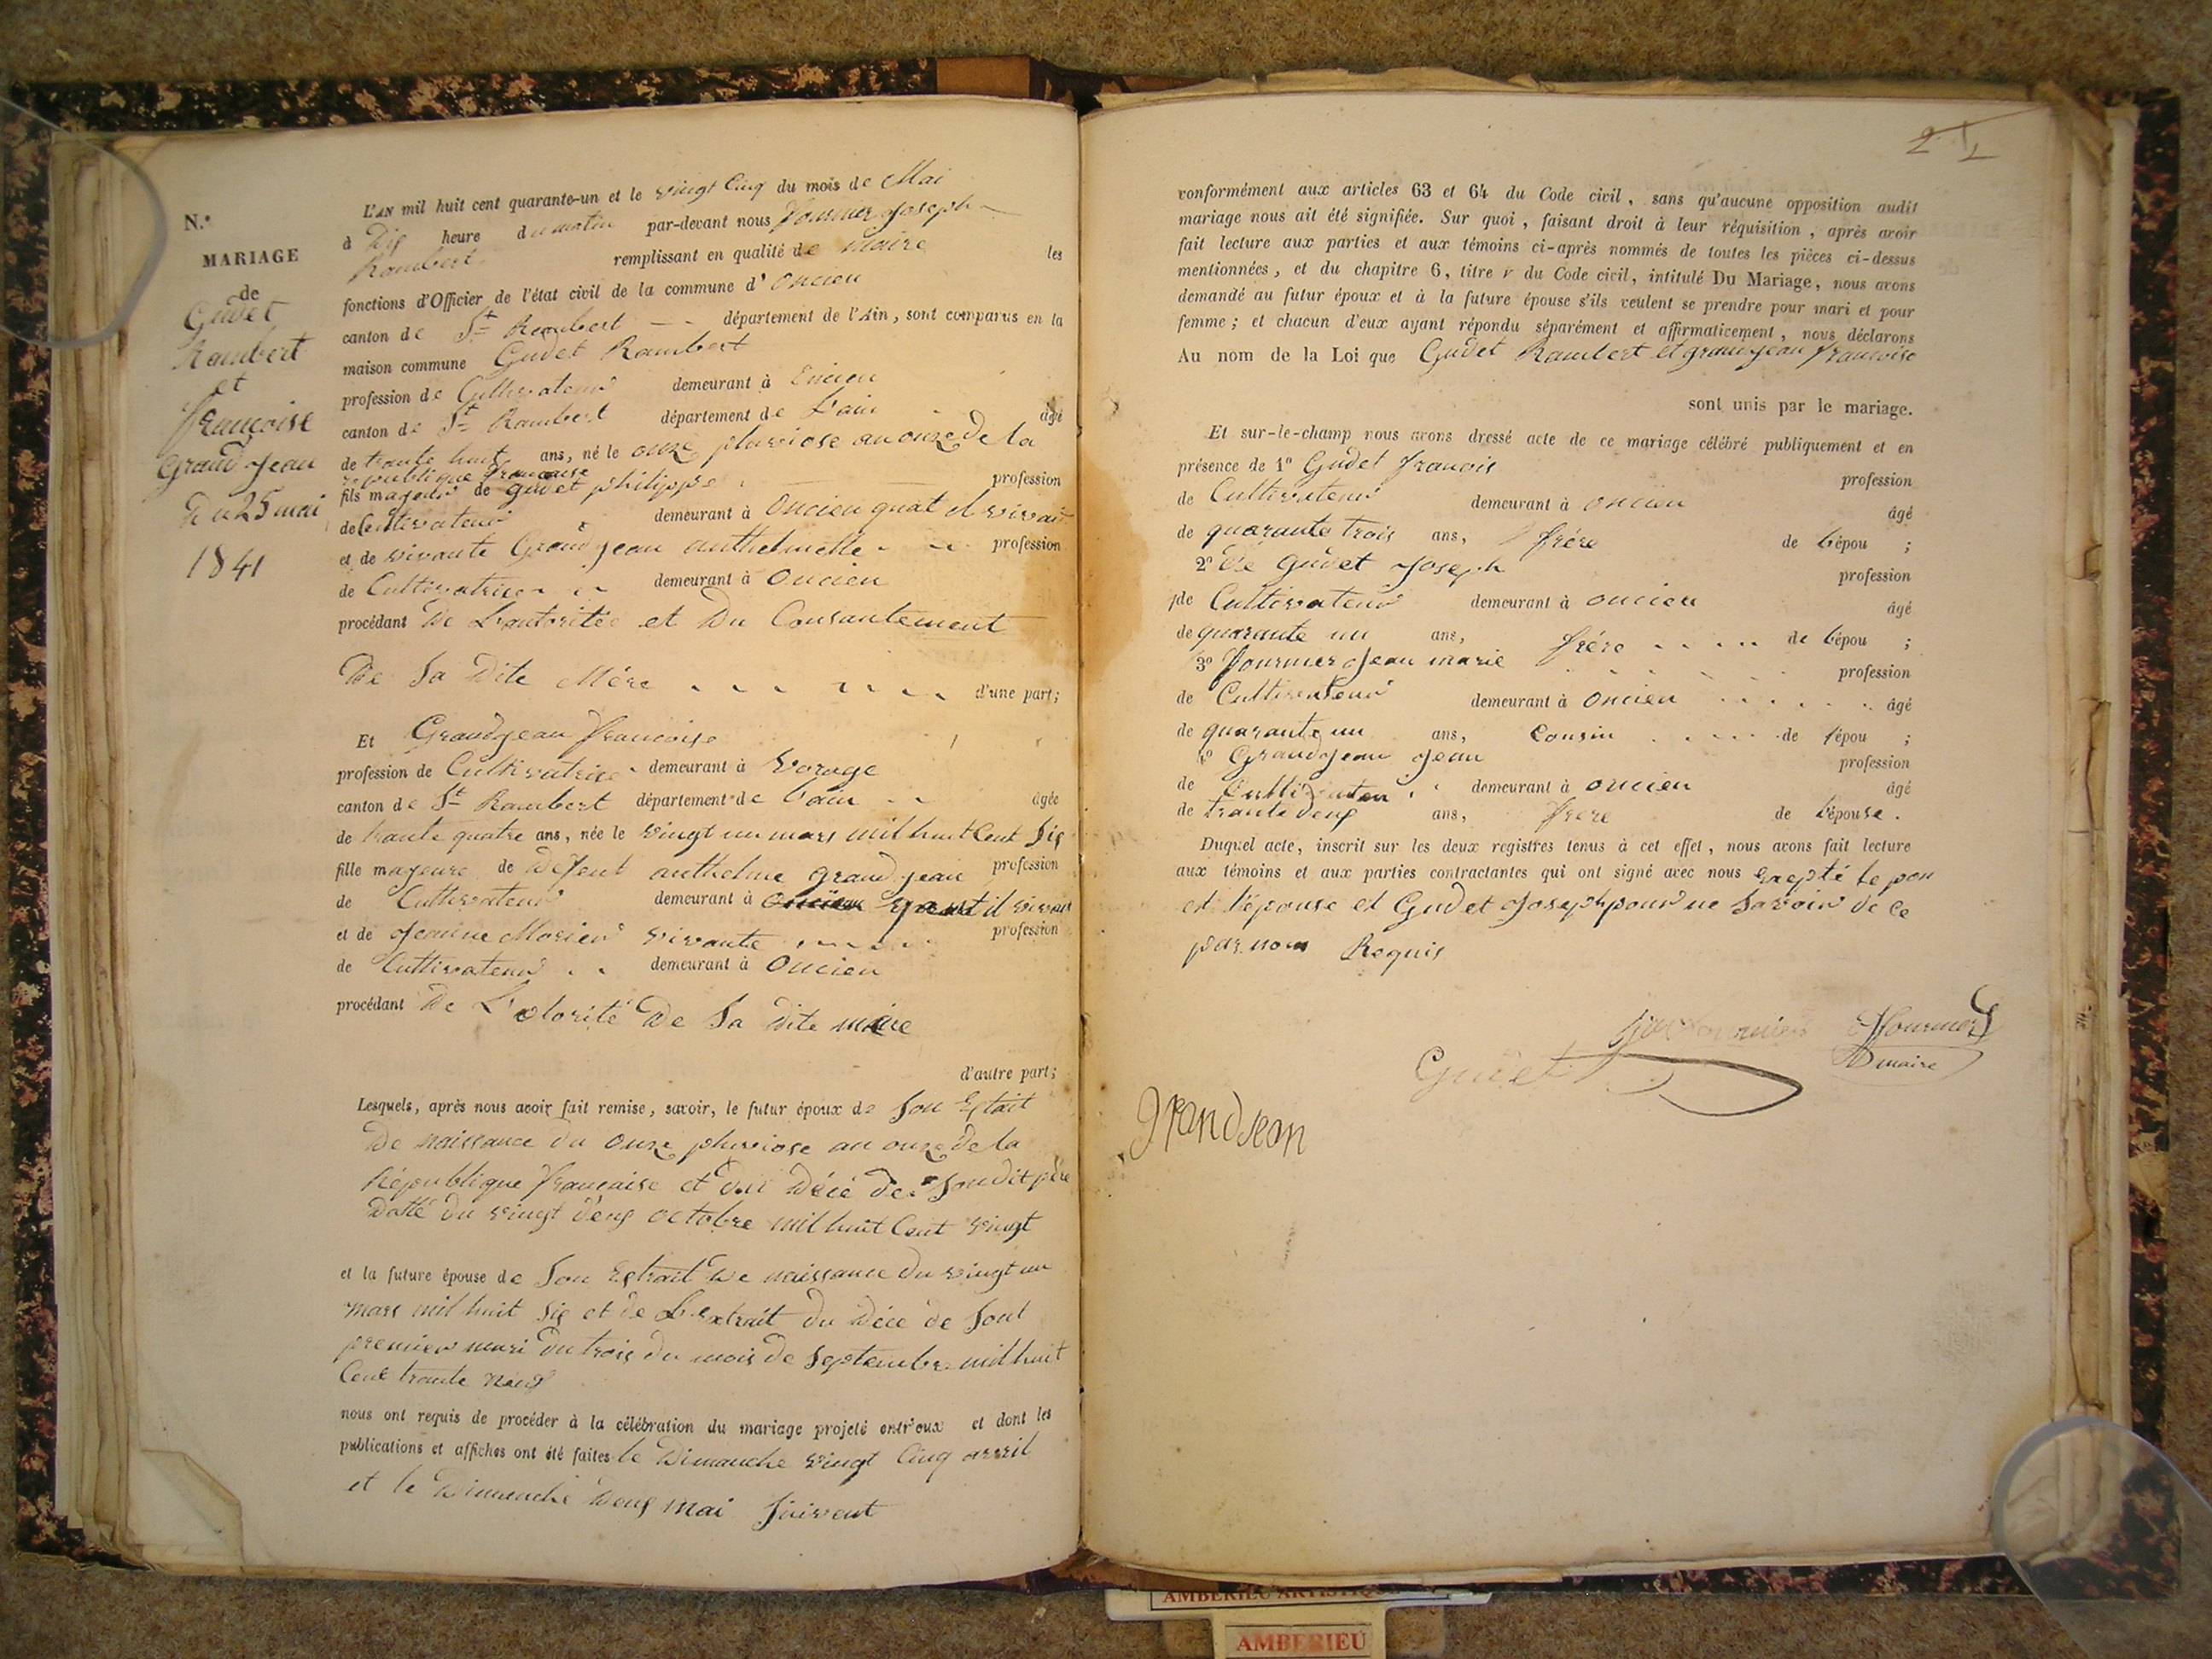 N.o
MARIAGE
de
Gudet
Rambert
et
françoise
grand Jean
Du 25 mai
1841
L'AN mil huit cent quarante-un et le vingt Cinq du mois de Mai
à Dix heure du matin par-devant nous fournier Joseph
Rambert remplissant en qualité de maire les
fonctions d'Officier de l'état civil de la commune d'oncieu
canton de St Rambert département de l'Ain, sont comparus en la
maison commune Gudet Rambert
profession de Cultivateur demeurant à oncieu
canton de St Rambert département de L'ain âgé
de trante huit ans, né le onze pluviose an onze de la
republique francaise
fils majeur de gudet philippe profession
de Cultivateur demeurant à Oncieu quat il vivait
et de vivante Grand Jean anthelmette profession
de Cultivatrice demeurant à Oncieu
procédant De L'autorité et Du Consantement
De Sa Dite Mére d'une part;
Et Grandjean francoise
profession de Cultivatrice demeurant à Vorage
canton de St Rambert département de L'ain âgée
de trante quatre ans, née le vingt un mars mil huit Cent Six
fille majeure de Defeut anthelme grand jean profession
de Cultivateur demeurant à quant il vivait
et de Jeanine Morier vivante profession
de Cultivateur demeurant à Oncieu
procédant De L'otorité De Sa Dite mère
d'autre part;
Lesquels, après nous avoir fait remise, savoir, le futur époux de Son Extait
De naissance du onze pluviose an onze de la
République francaise et du Décé de Son dit père
Datté du vingt Deux octobre mil huit Cent vingt
et la future épouse de Son Extrait De naissance Du vingt un
mars mil huit Six et de L'extrait du Décé de Sont
premier mari Du trois du mois de Septembre mil huit
Cent trante neuf
nous ont requis de procéder à la célébration du mariage projeté entr'eux et dont les
publications et affiches ont été faites le Dimanche vingt Cinq avril
et le Dimanche Deux mai Suivent
conformément aux articles 63 et 64 du Code civil, sans qu'aucune opposition audit
mariage nous ait été signifiée. Sur quoi, faisant droit à leur réquisition, après avoir
fait lecture aux parties et aux témoins ci-après nommés de toutes les pièces ci-dessus
mentionnées, et du chapitre 6, titre v du Code civil, intitulé Du Mariage, nous avons
demandé au futur époux et à la future épouse s'ils veulent se prendre pour mari et pour
femme; et chacun d'eux ayant répondu séparément et affirmativement, nous déclarons
Au nom de la Loi que Gudet Rambert et grandjean francoise
sont unis par le mariage.
Et sur-le-champ nous avons dressé acte de ce mariage célébré publiquement et en
présence de 1o Gudet francois profession
de Cultivateur demeurant à oncieu âgé
de quarante trois ans, frére de l'épou ;
2o De Gudet Joseph profession
de Cultivateur demeurant à oncieu âgé
de quarante un ans, frére de l'épou ;
3o fournier Jean marie profession
de Cultivateur demeurant à oncieu âgé
de quarante un ans, Cousin de l'épou ;
4o Grandjean Jean profession
de Cultivateur demeurant à oncieu âgé
de trante deux ans, frere de l'épouse.
Duquel acte, inscrit sur les deux registres tenus à cet effet, nous avons fait lecture
aux témoins et aux parties contractantes qui ont signé avec nous exepté le pou
et l'épouse et Gudet Joseph pour ne Savoir De Ce
par nous Requis
fournier
maire
Gudet
grandjean
AMBERIEU ARTISTIQUE
AMBERIEU